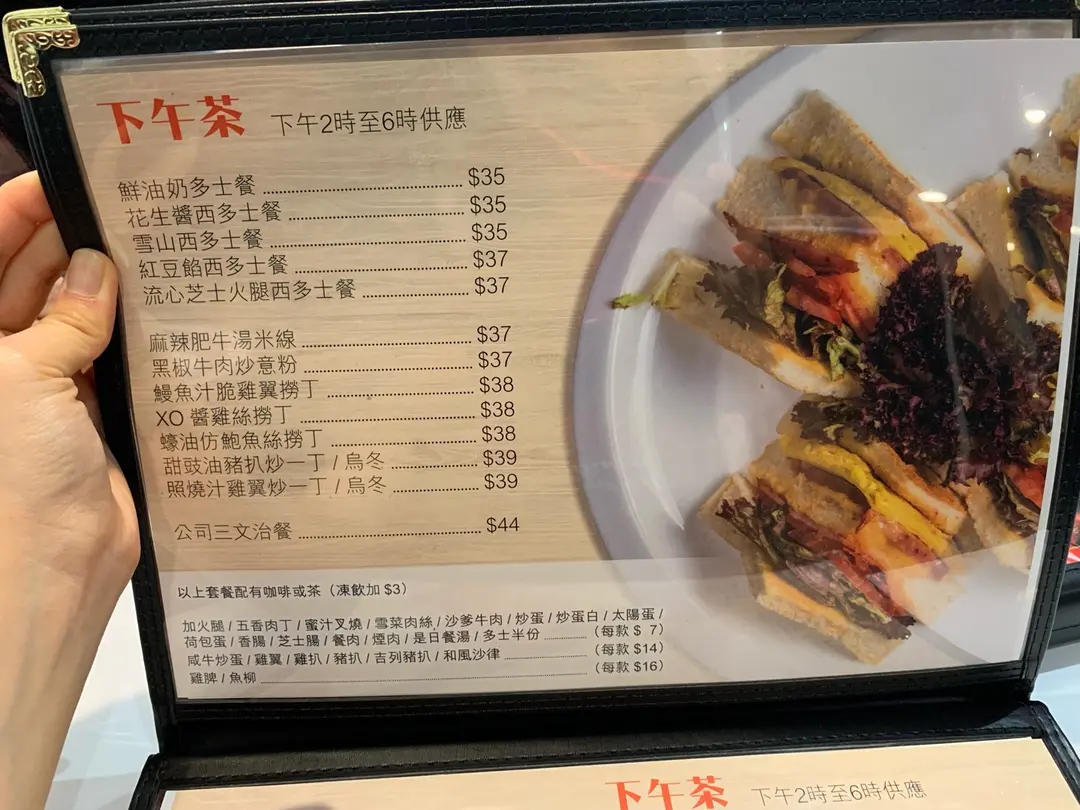 下午茶 下午2時至6時供應
鮮油奶多士餐 $35
花生醬西多士餐 $35
雪山西多士餐 $35
紅豆餡西多士餐 $37
流心芝士火腿西多士餐 $37
麻辣肥牛湯米線 $37
黑椒牛肉炒意粉 $37
鰻魚汁脆雞翼撈丁 $38
XO 醬雞絲撈丁 $38
蠔油仿鮑魚絲撈丁 $38
甜豉油豬扒炒一丁 / 烏冬 $39
照燒汁雞翼炒一丁 / 烏冬 $39
公司三文治餐 $44
以上套餐配有咖啡或茶（凍飲加 $3）
加火腿 / 五香肉丁 / 蜜汁叉燒 / 雪菜肉絲 / 沙爹牛肉 / 炒蛋 / 炒蛋白 / 太陽蛋 /
荷包蛋 / 香腸 / 芝士腸 / 餐肉 / 煙肉 / 是日餐湯 / 多士半份 （每款 $ 7）
咸牛炒蛋 / 雞翼 / 雞扒 / 豬扒 / 吉列豬扒 / 和風沙律 （每款 $14）
雞脾 / 魚柳 （每款 $16）
下午茶 下午2時至6時供應